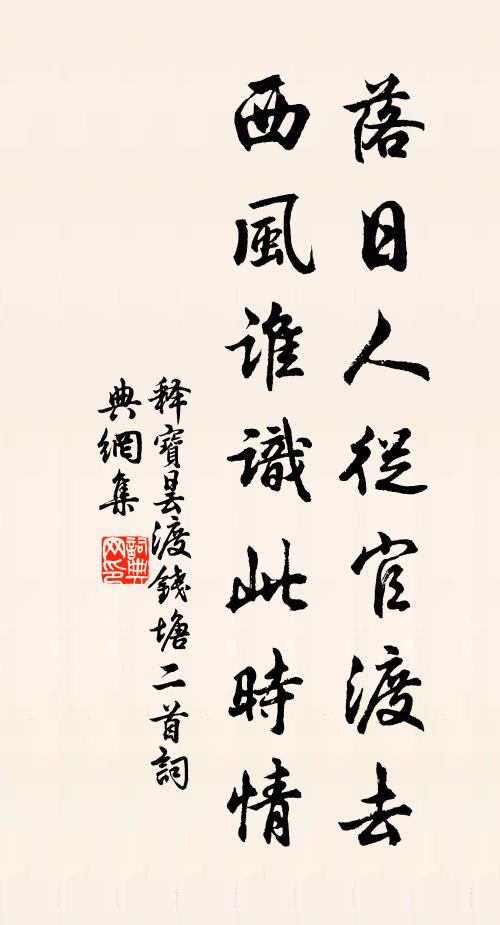 落日人從官渡去
西風誰識此時情
釋寶曇渡錢塘二首詞
典網集
詞典網印